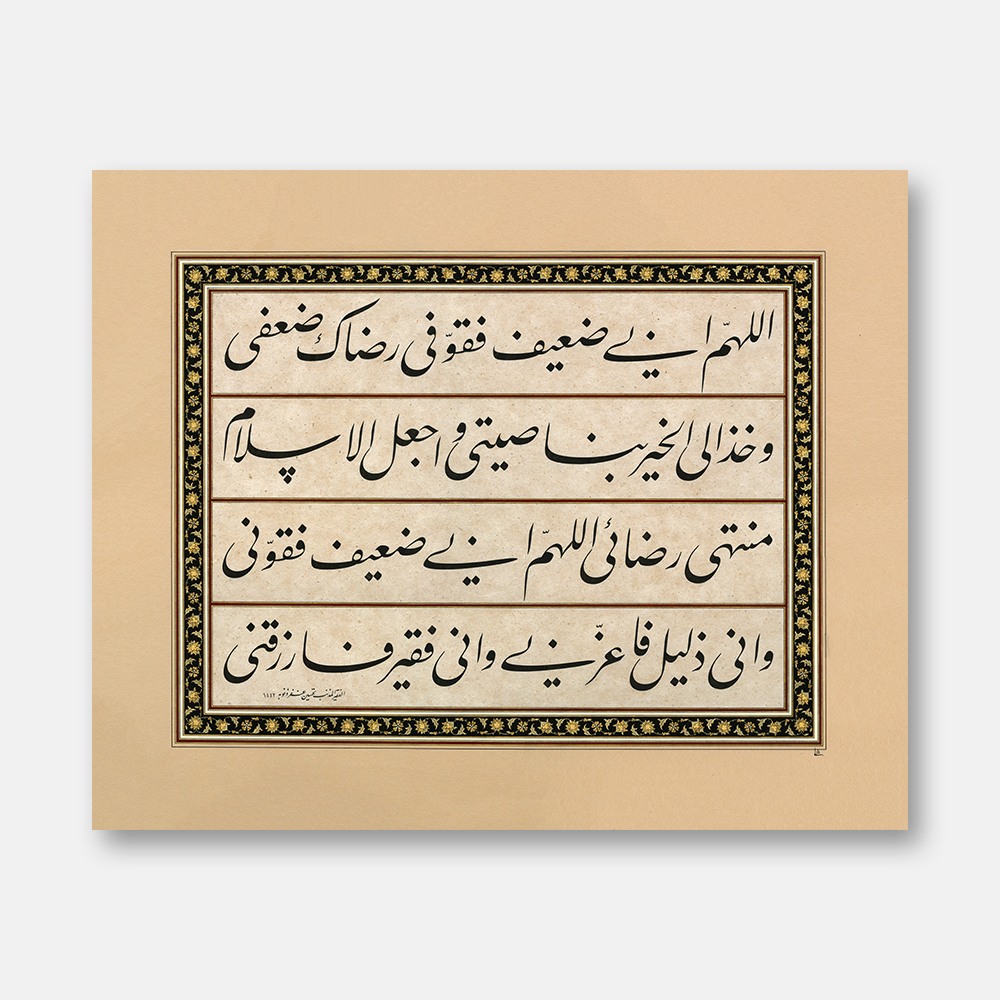 اللهمّ اني ضعيف فقوّ في رضاك ضعفي
وخذ الى الخير بناصيتي واجعل الاسلام
منتهى رضائي اللهمّ اني ضعيف فقوّني
واني ذليل فاعزّني واني فقير فارزقني